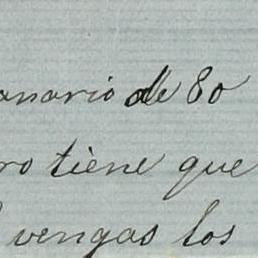 anario de 80
ro tiene que
vengas los